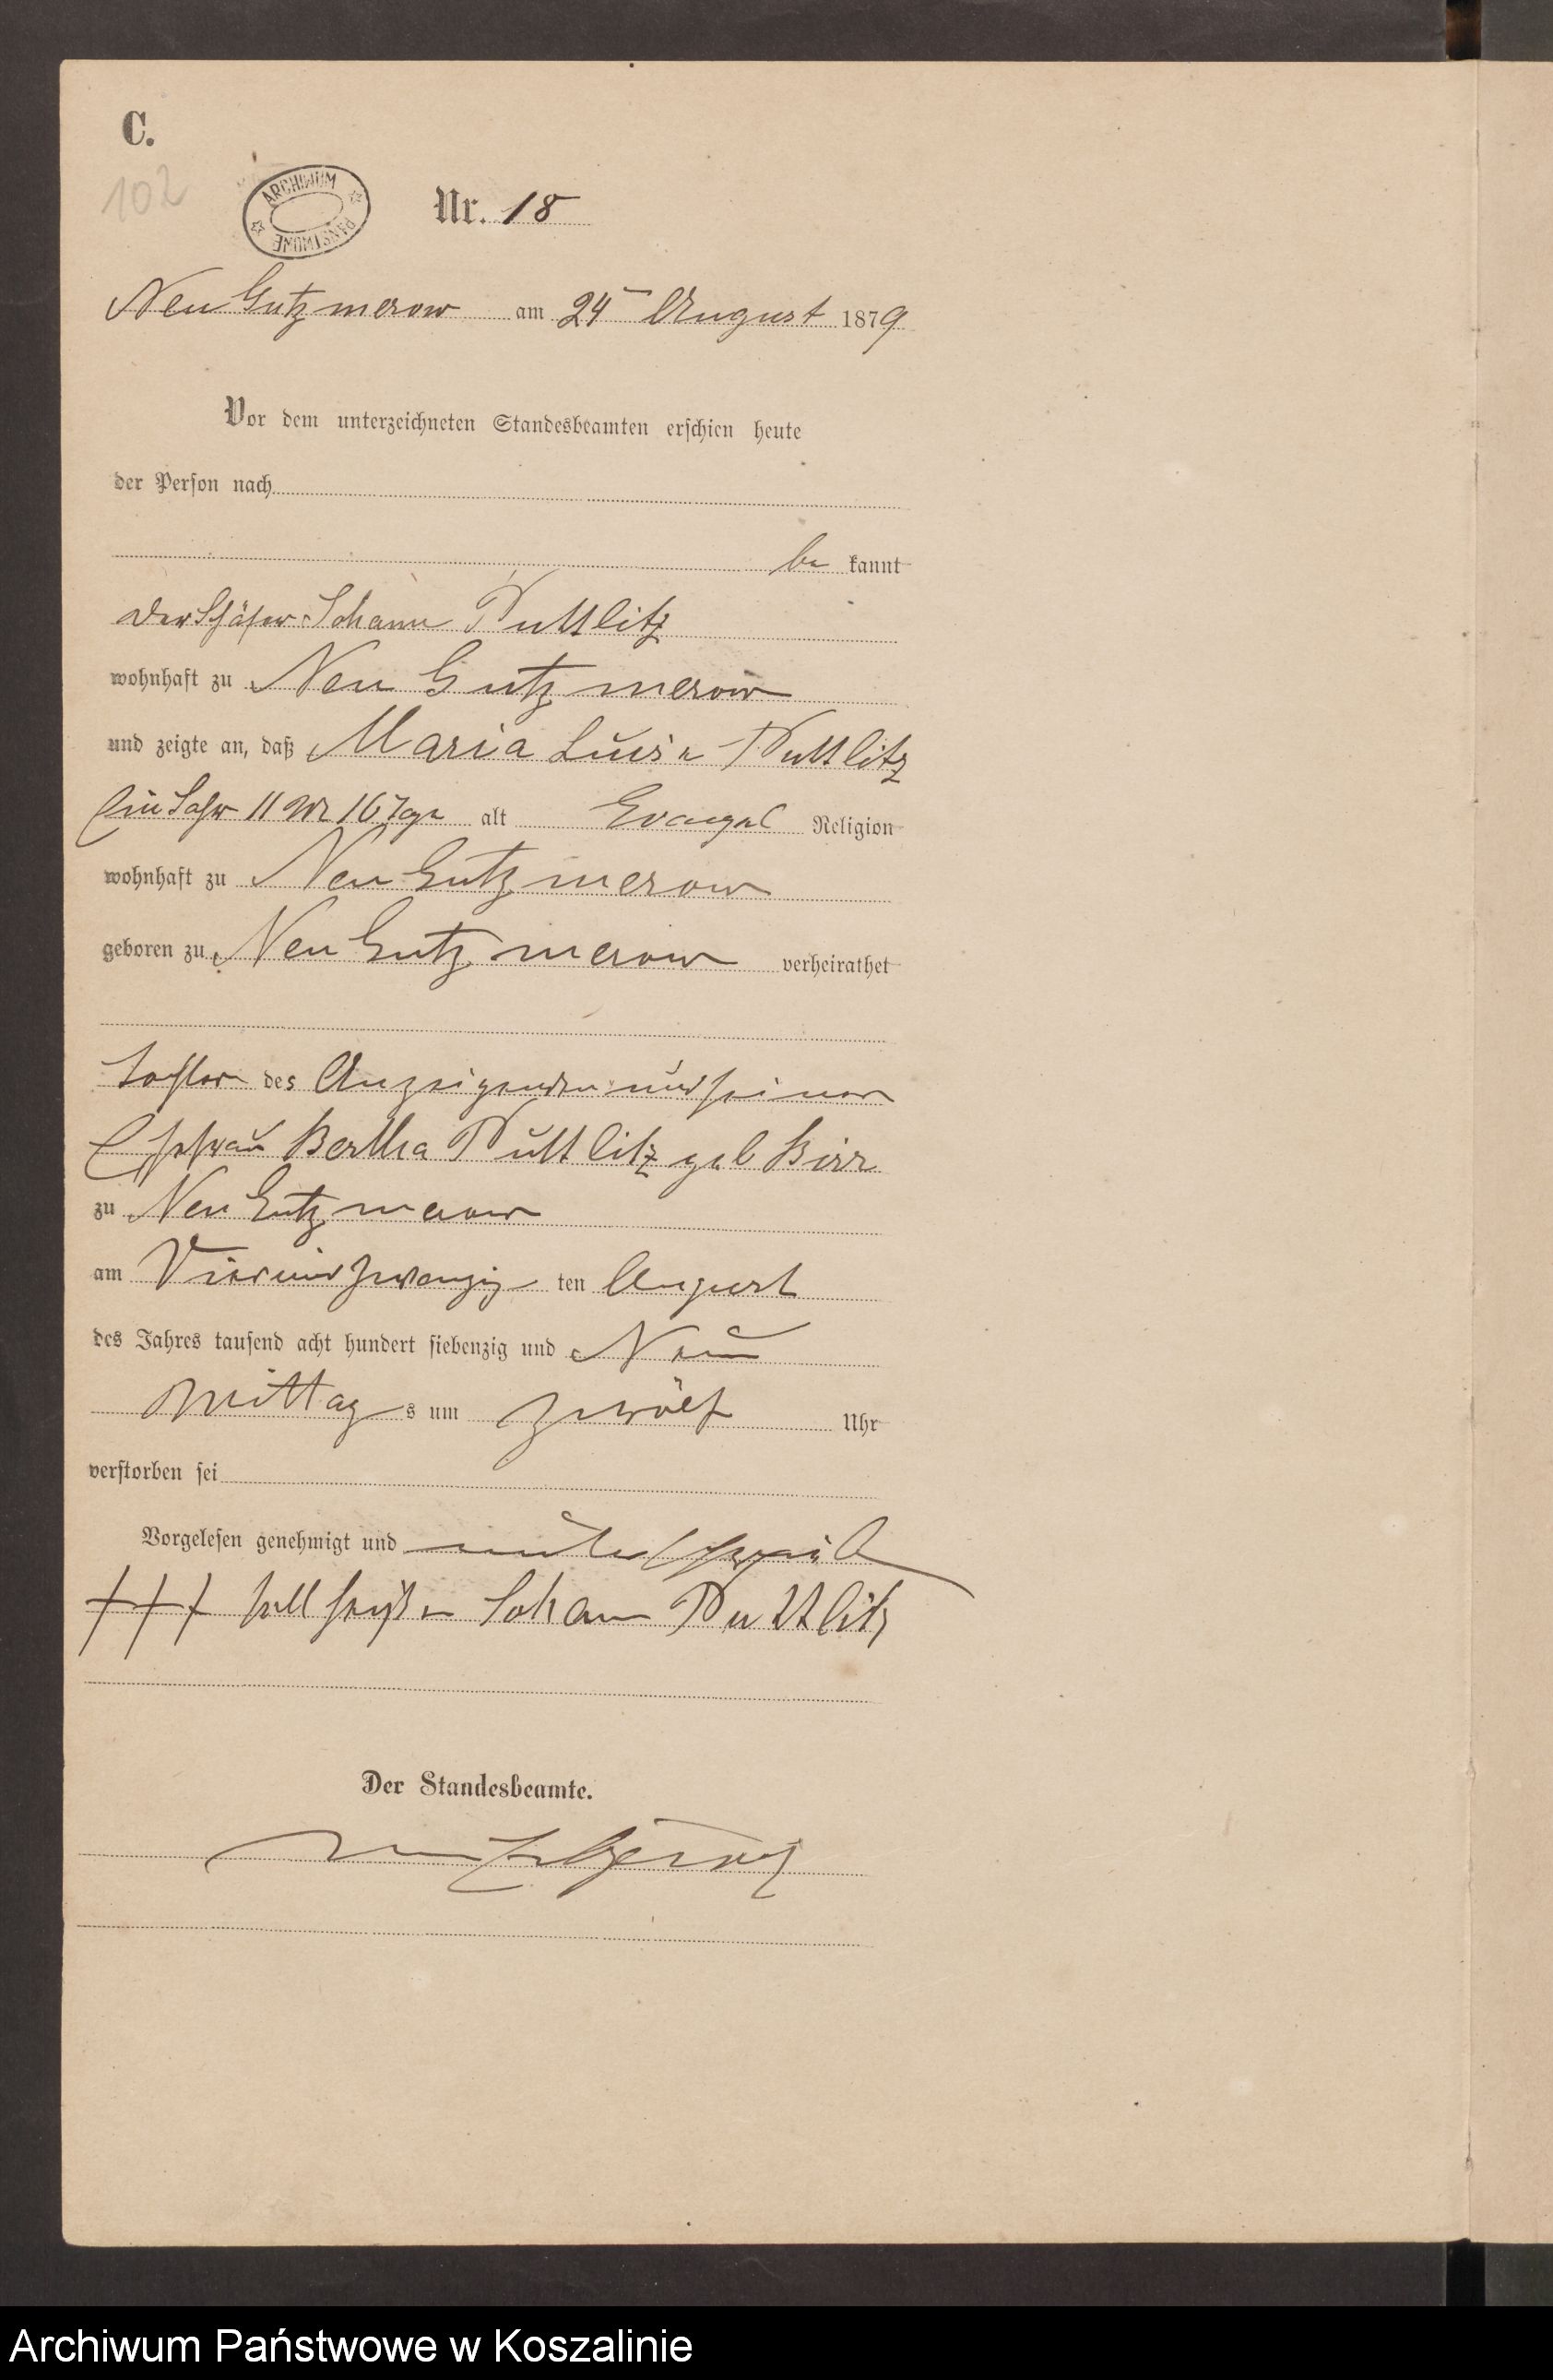 C.
102
ARCHIWUM PAŃSTWOWE
Nr. 18
Neu Gutzmerow am 24 August 1879
Vor dem unterzeichneten Standesbeamten erschien heute
der Person nach
be kannt
der Schäfer Johann Puttlitz
wohnhaft zu Neu Gutzmerow
und zeigte an, daß Maria Luise Puttlitz
Ein Jahr 11 Mt 16 Tge alt Evangel Religion
wohnhaft zu Neu Gutzmerow
geboren zu Neu Gutzmerow verheirathet
Tochter des Anzeigenden und seiner
Ehefrau Bertha Puttlitz geb Birr
zu Neu Gutzmerow
am Vierundzwanzig ten August
des Jahres tausend acht hundert siebenzig und Neun
Mittag s um zwölf Uhr
verstorben sei
Vorgelesen genehmigt und
+++ soll heißen Johann Puttlitz
Der Standesbeamte.
Archiwum Państwowe w Koszalinie